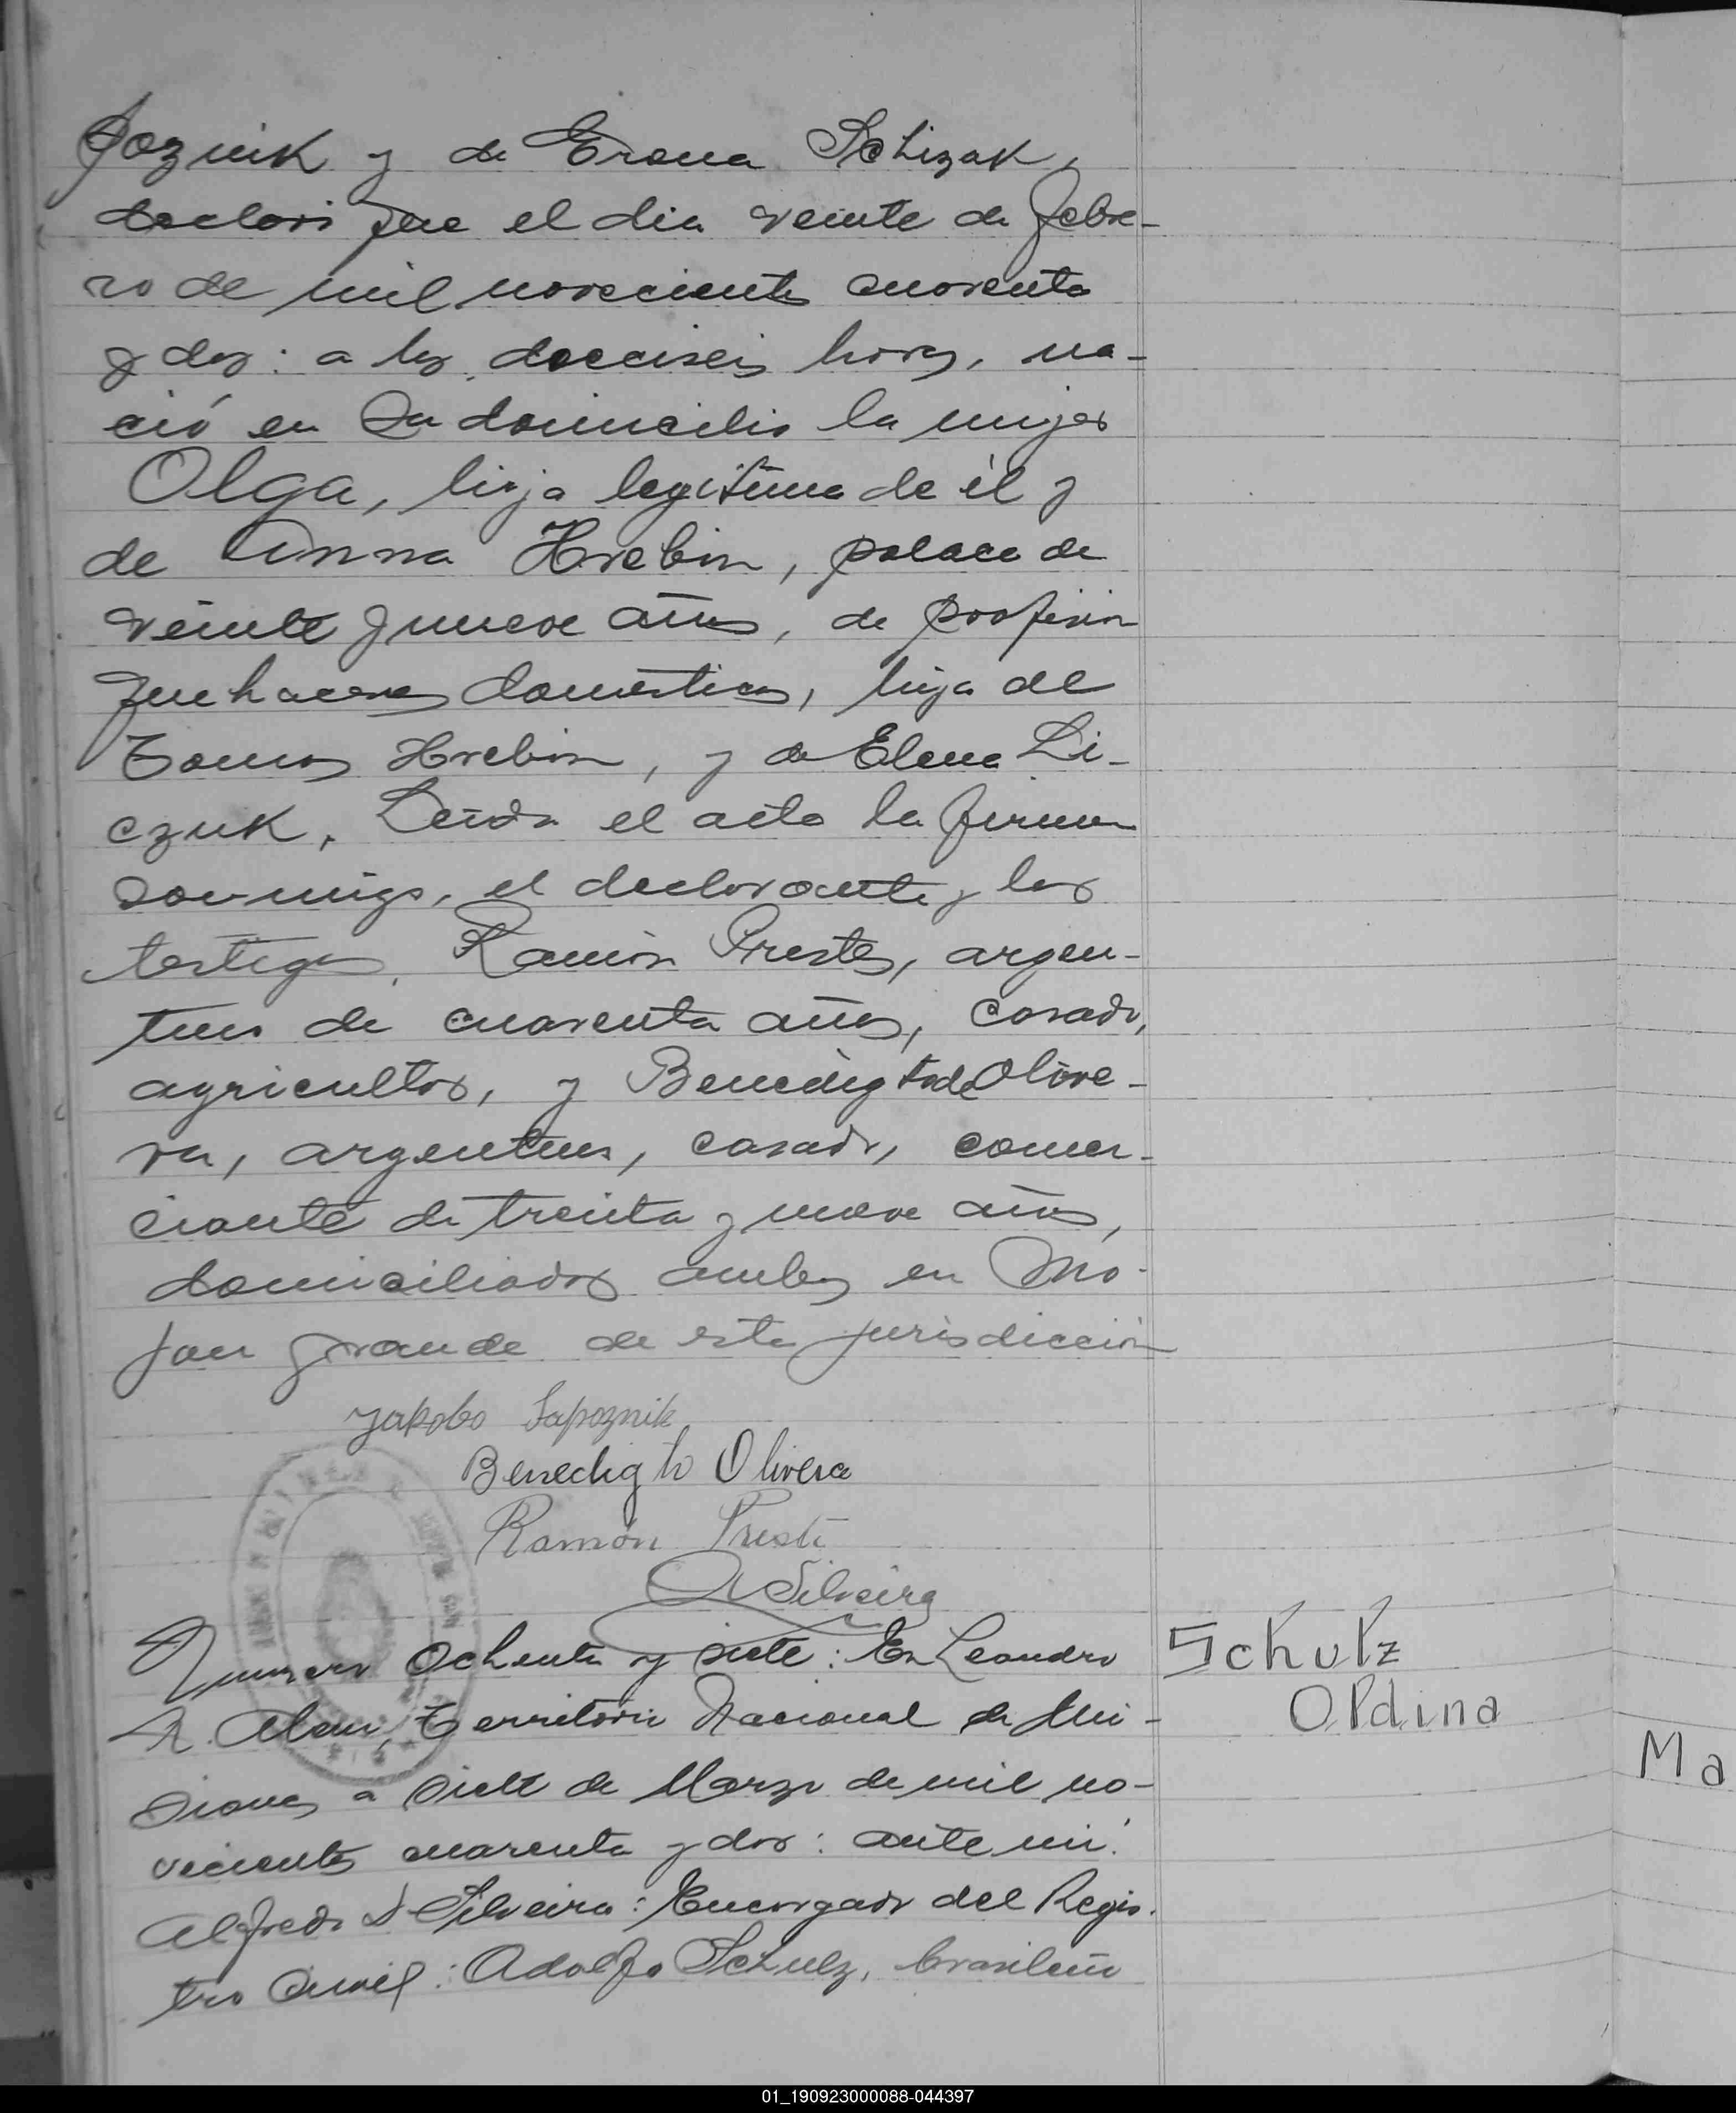 poznik y de Erona Schizak,
declaró que el dia veinte de febre-
ro de mil novecientos cuarenta
y dos: a las dieciseis horas, na-
ció en su domicilio la mujer
Olga, hija legítima de él y
de Anna Hrebin, polaca de
veinte y nueve años, de profesion
quehaceres domésticos, hija de
Tomas Hrebin, y de Elena Li-
czuk. Leida el acta la firman
conmigo, el declarante y los
testigos. Ramón Prestes, argen-
tino de cuarenta años, casado,
agricultor, y Benedigto de Olive-
ra, argentino, casado, comer-
ciante de treinta y nueve años,
domiciliados ambos en Mo-
jon grande de esta jurisdiccion
Jakobo Sapoznik
Benedigto Olivera
Ramón Preste
Silveira
Numero Ochenta y siete: En Leandro
N. Alem, Territorio Nacional de Mi-
siones a siete de Marzo de mil no-
vecientos cuarenta y dos: ante mi:
Alfredo D Silveira: Encargado del Regis-
tro Civil: Adolfo Schulz, brasileño
Schulz
Oldina
Ma
01_190923000088-044397